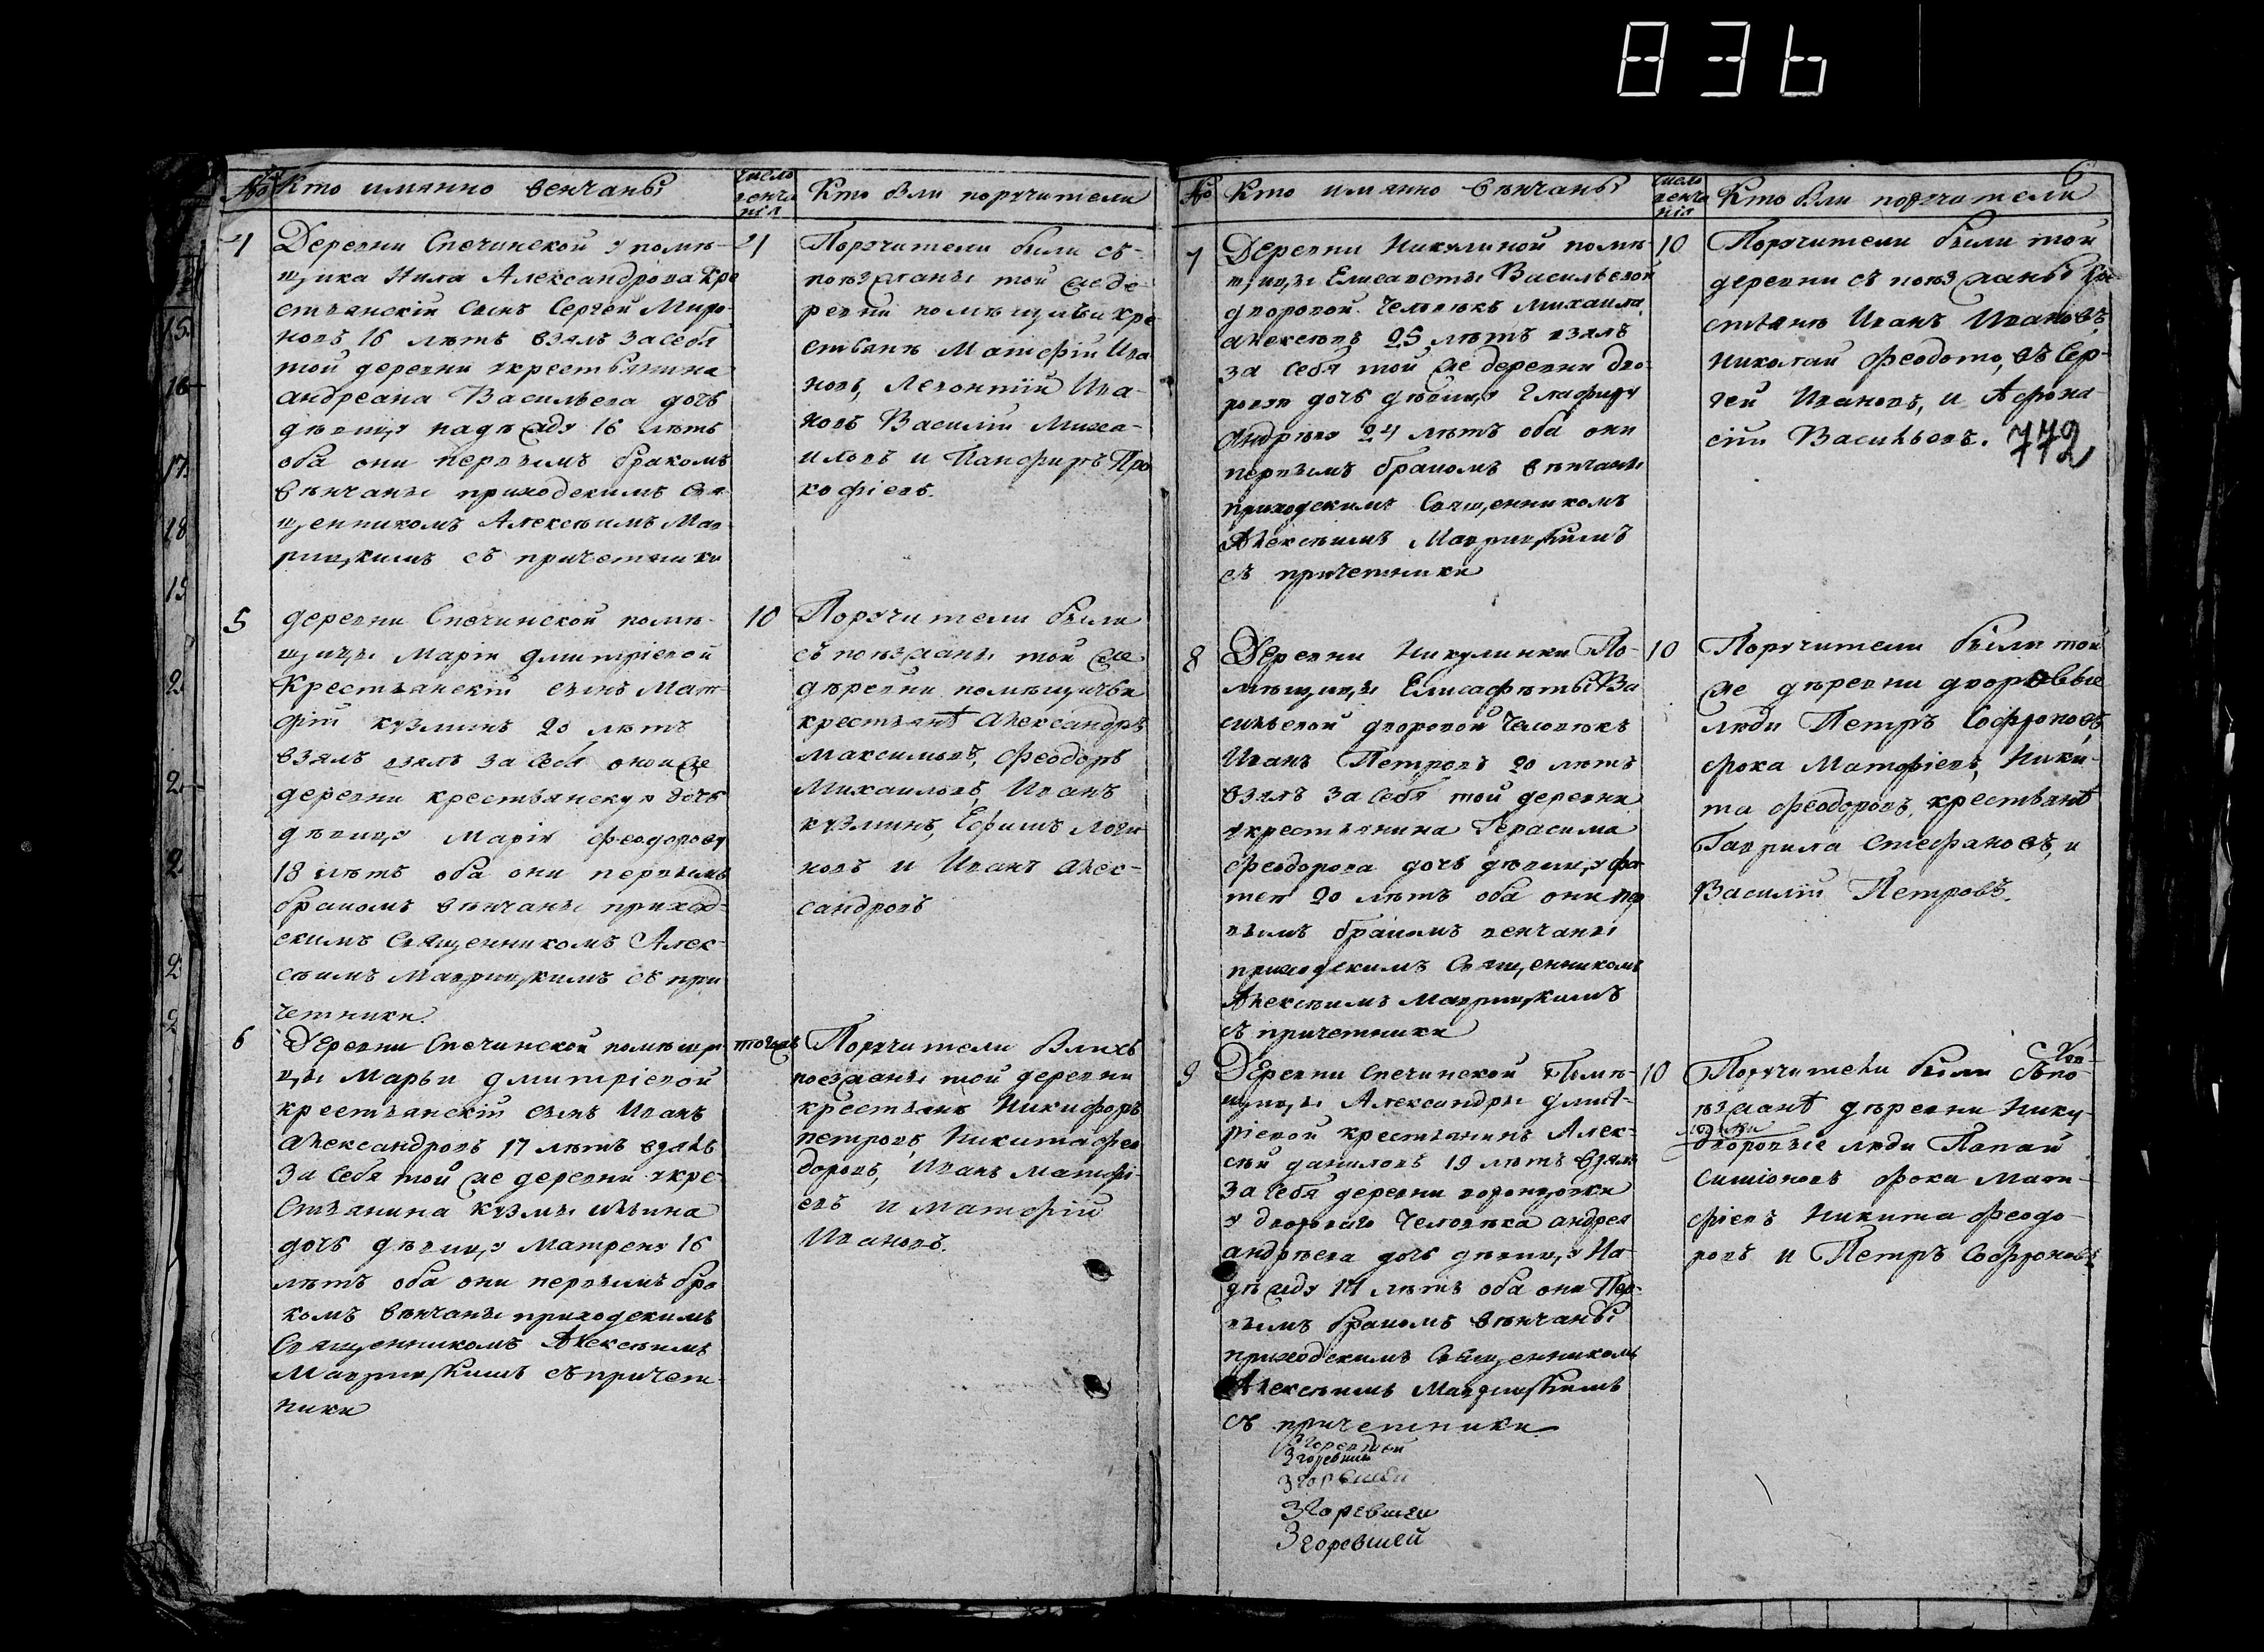 836
№ Кто имянно венчаны
число венчания
Кто бли поручители
4
Деревни Спечинской у помѣ-
щика Нила Александрова кре
стьянскій сынъ Сергей Миро-
новъ 16 лѣтъ взялъ засебя
той деревни укрестьянина
андреана Васильева дочь
дѣвицу надѣжду 16 лѣтъ
оба они первымъ бракомъ
вѣнчаны приходскимъ Свя
щенникомъ Алексѣимъ Мав-
рицкимъ съ причетники
4
Поручители были съ-
поѣзжаны той же де-
ревни помѣщичьи кре
стьянѣ Матфій Ива
новъ, Леонтій Ива-
новъ Василій Миха-
иловъ и Панфиръ Про
кофіевъ.
5
деревни Спечинской помѣ-
щицы Маріи дмитріевой
Крестьянскій сынъ Мат-
фій кузминъ 20 лѣтъ
взялъ взялъ за себя оной же
деревни крестьянскую дочь
дѣвицу Марію феодорову
18 лѣтъ оба они первымъ
бракомъ вѣнчаны приход-
скимъ Священникомъ Алек-
сѣимъ Маврицкимъ съ при
четники.
10
Поручители были
съ поѣзжаны той же
дѣревни помѣщичьи
крестьянѣ Александръ
Максимовъ, Феодоръ
Михаиловъ, Иванъ
кузминъ, Ефимъ Логи
новъ и Иванъ Алек-
сандровъ
6
Деревни Спечинской помѣщи
цы Марьи дмитріевой
крестьянскій сынъ Иванъ
Александровъ 17 лѣтъ взялъ
За себя той же деревни укре-
стьянина кузмы ильина
дочь дѣвицу Матрену 16
лѣтъ оба они первымъ бра
комъ вѣнчаны приходскимъ
Священникомъ Алексѣимъ
Маврицкимъ съ причет-
ники
тогожъ
Поручители блисъ
поезжаны той деревни
крестьянѣ Никифоръ
петровъ, Никита фео
доровъ, Иванъ Матфі-
евъ и Матфій
Ивановъ.
6
№ Кто имянно вѣнчаны
число венчания
Кто бли поручители
7
Деревни Никулиной помѣ
щицы Елисаветы Васильевой
дворовой человѣкъ Михаила
Алексѣевъ 25 лѣтъ взялъ
за себя той же деревни дво-
ровую дочь дѣвицу Глафиру
Андрѣеву 24 лѣтъ оба они
первымъ бракомъ вѣнчаны
приходскимъ Священникомъ
Алексѣимъ Маврицкимъ
съ причетники
10
Поручители были той
деревни съ поѣзжаны кре-
стьянѣ Иванъ Ивановъ,
николай феодотовъ Сер-
гей Ивановъ, и Афона-
сій Васильевъ.
772
8
Деревни Никулинки По-
мѣщицы Елисафѣты Ва
сильевой дворовой человѣкъ
Иванъ Петровъ 20 лѣтъ
взялъ за себя той деревни
укрестьянина Герасима
феодорова дочь дѣвицу фо
тею 20 лѣтъ оба они пер
вымъ бракомъ венчаны
приходскимъ Священникомъ
Алексѣимъ Маврицкимъ
съ причетники
10
Поручители были той
же дѣревни дворовые
люди Петръ Софроновъ,
фока Матфіевъ, Ники-
та феодоровъ, крестьянѣ
Гаврила Стефановъ, и
Василій Петровъ.
9
Деревни Спечинской Помѣ-
щицы Александры дмит-
ріевой крестьянинъ Алек-
сѣй даниловъ 19 лѣтъ взялъ
за себя деревни воронцовки
у двороваго человѣка андрея
андрѣева дочь дѣвицу На-
дѣжду 17 лѣтъ оба они Пер-
вымъ бракомъ вѣнчаны
приходскимъ Священникомъ
Алексѣимъ Маврицкимъ
съ причетники
10
Поручители были съпо-
ѣзжанѣ дѣревни Нику-
линки
дворовые люди
Симіоновъ фока Мат-
фіевъ Никита Феодо-
ровъ и Петръ Софроновъ
Згоревшей
Згоревшей
Згоревшей
Згоревшей
Згоревшей